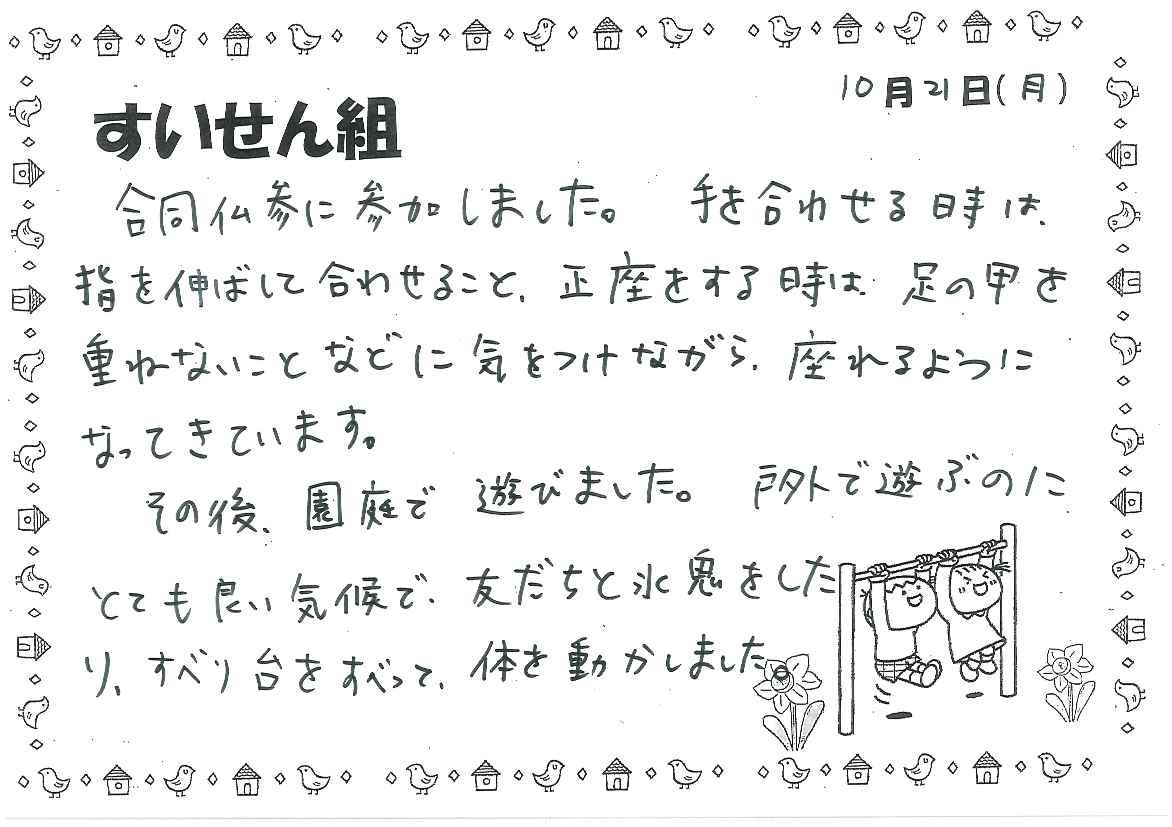 10月21日(月)
すいせん組
合同仏参に参加しました。 手を合わせる時は、
指を伸ばして合わせること、正座をする時は、足の甲を
重ねないことなどに気をつけながら、座れるように
なってきています。
その後、園庭で遊びました。 戸外で遊ぶのに
とても良い気候で、友だちと氷鬼をした
り、すべり台をすべって、体を動かしました。